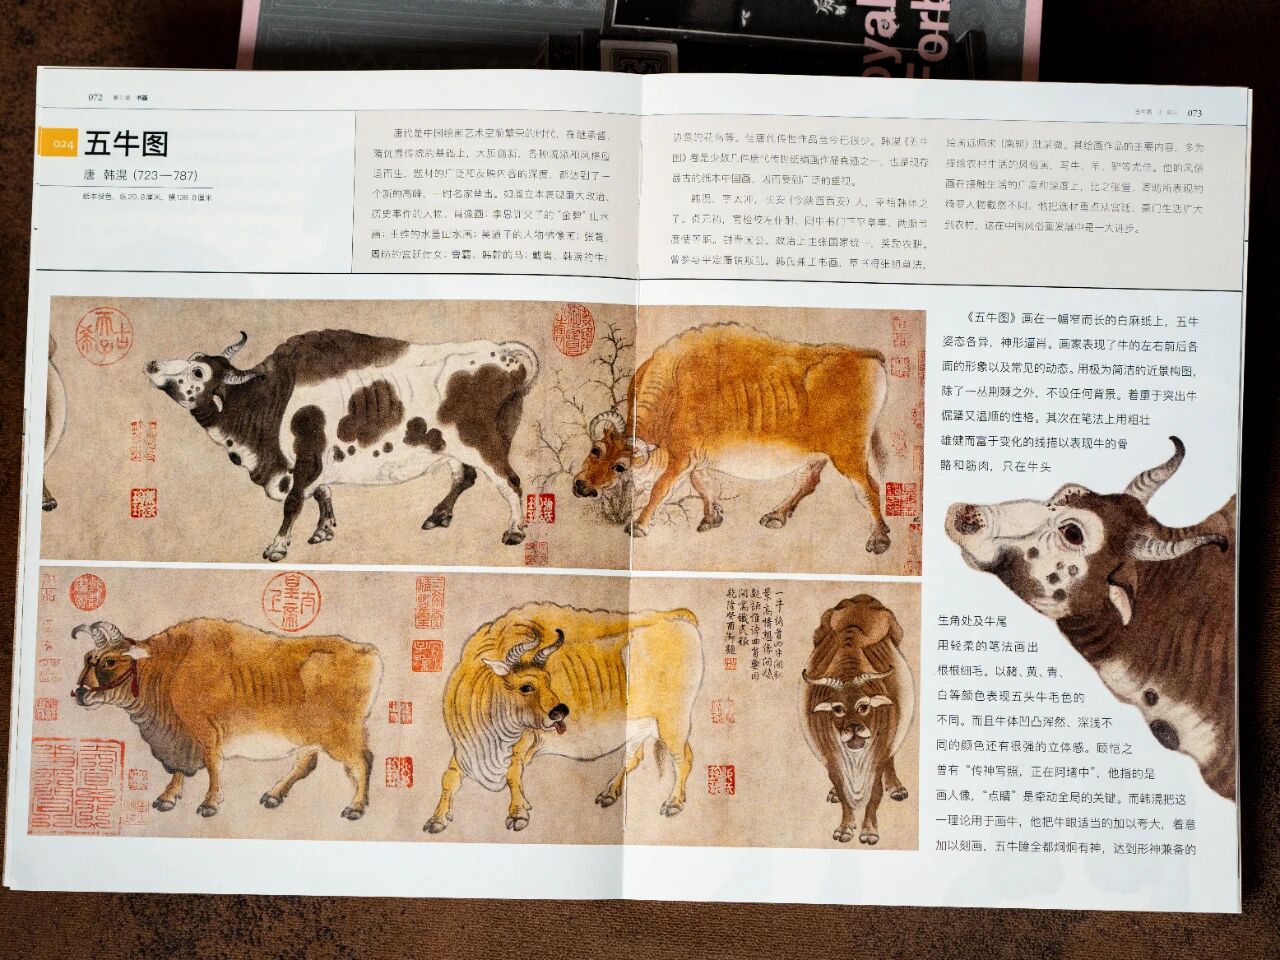 072 第2章 书画
五牛图 073
024 五牛图
唐 韩滉（723—787）
纸本设色，纵20.8厘米，横139.8厘米
唐代是中国绘画艺术空前繁荣的时代，在继承晋、
隋优秀传统的基础上，大胆创新，各种流派和风格应
运而生，题材的广泛和反映内容的深度，都达到了一
个新的高峰，一时名家辈出。如阎立本表现重大政治、
历史事件的人物、肖像画；李思训父子的“金碧”山水
画；王维的水墨山水画；吴道子的人物佛像画；张萱、
周昉的宫廷仕女；曹霸、韩幹的马；戴嵩、韩滉的牛；
边鸾的花鸟等。但唐代传世作品至今已很少。韩滉《五牛
图》卷是少数几件唐代传世纸绢画作品真迹之一，也是现存
最古的纸本中国画，因而受到广泛的重视。
韩滉，字太冲，长安（今陕西西安）人，宰相韩休之
子。贞元初，官检校左仆射、同中书门下平章事、两浙节
度使等职。封晋国公。政治上主张国家统一，奖励农耕。
曾参与平定藩镇叛乱。韩氏兼工书画，草书得张旭草法，
绘画远师宋（南朝）陆采微。其绘画作品的主要内容，多为
描绘农村生活的风俗画，写牛、羊、驴等尤佳。他的风俗
画在接触生活的广度和深度上，比之张萱、周昉所表现的
绮罗人物截然不同。他把选材重点从宫廷、豪门生活扩大
到农村，这在中国风俗画发展中是一大进步。
《五牛图》画在一幅窄而长的白麻纸上，五牛
姿态各异，神形逼肖。画家表现了牛的左右前后各
面的形象以及常见的动态。用极为简洁的近景构图，
除了一丛荆棘之外，不设任何背景。着重于突出牛
倔犟又温顺的性格。其次在笔法上用粗壮
雄健而富于变化的线描以表现牛的骨
骼和筋肉，只在牛头
生角处及牛尾
用轻柔的笔法画出
根根细毛。以赭、黄、青、
白等颜色表现五头牛毛色的
不同。而且牛体凹凸浑然、深浅不
同的颜色还有很强的立体感。顾恺之
曾有“传神写照，正在阿堵中”，他指的是
画人像，“点睛”是牵动全局的关键。而韩滉把这
一理论用于画牛，他把牛眼适当的加以夸大，着意
加以刻画，五牛瞳全都炯炯有神，达到形神兼备的